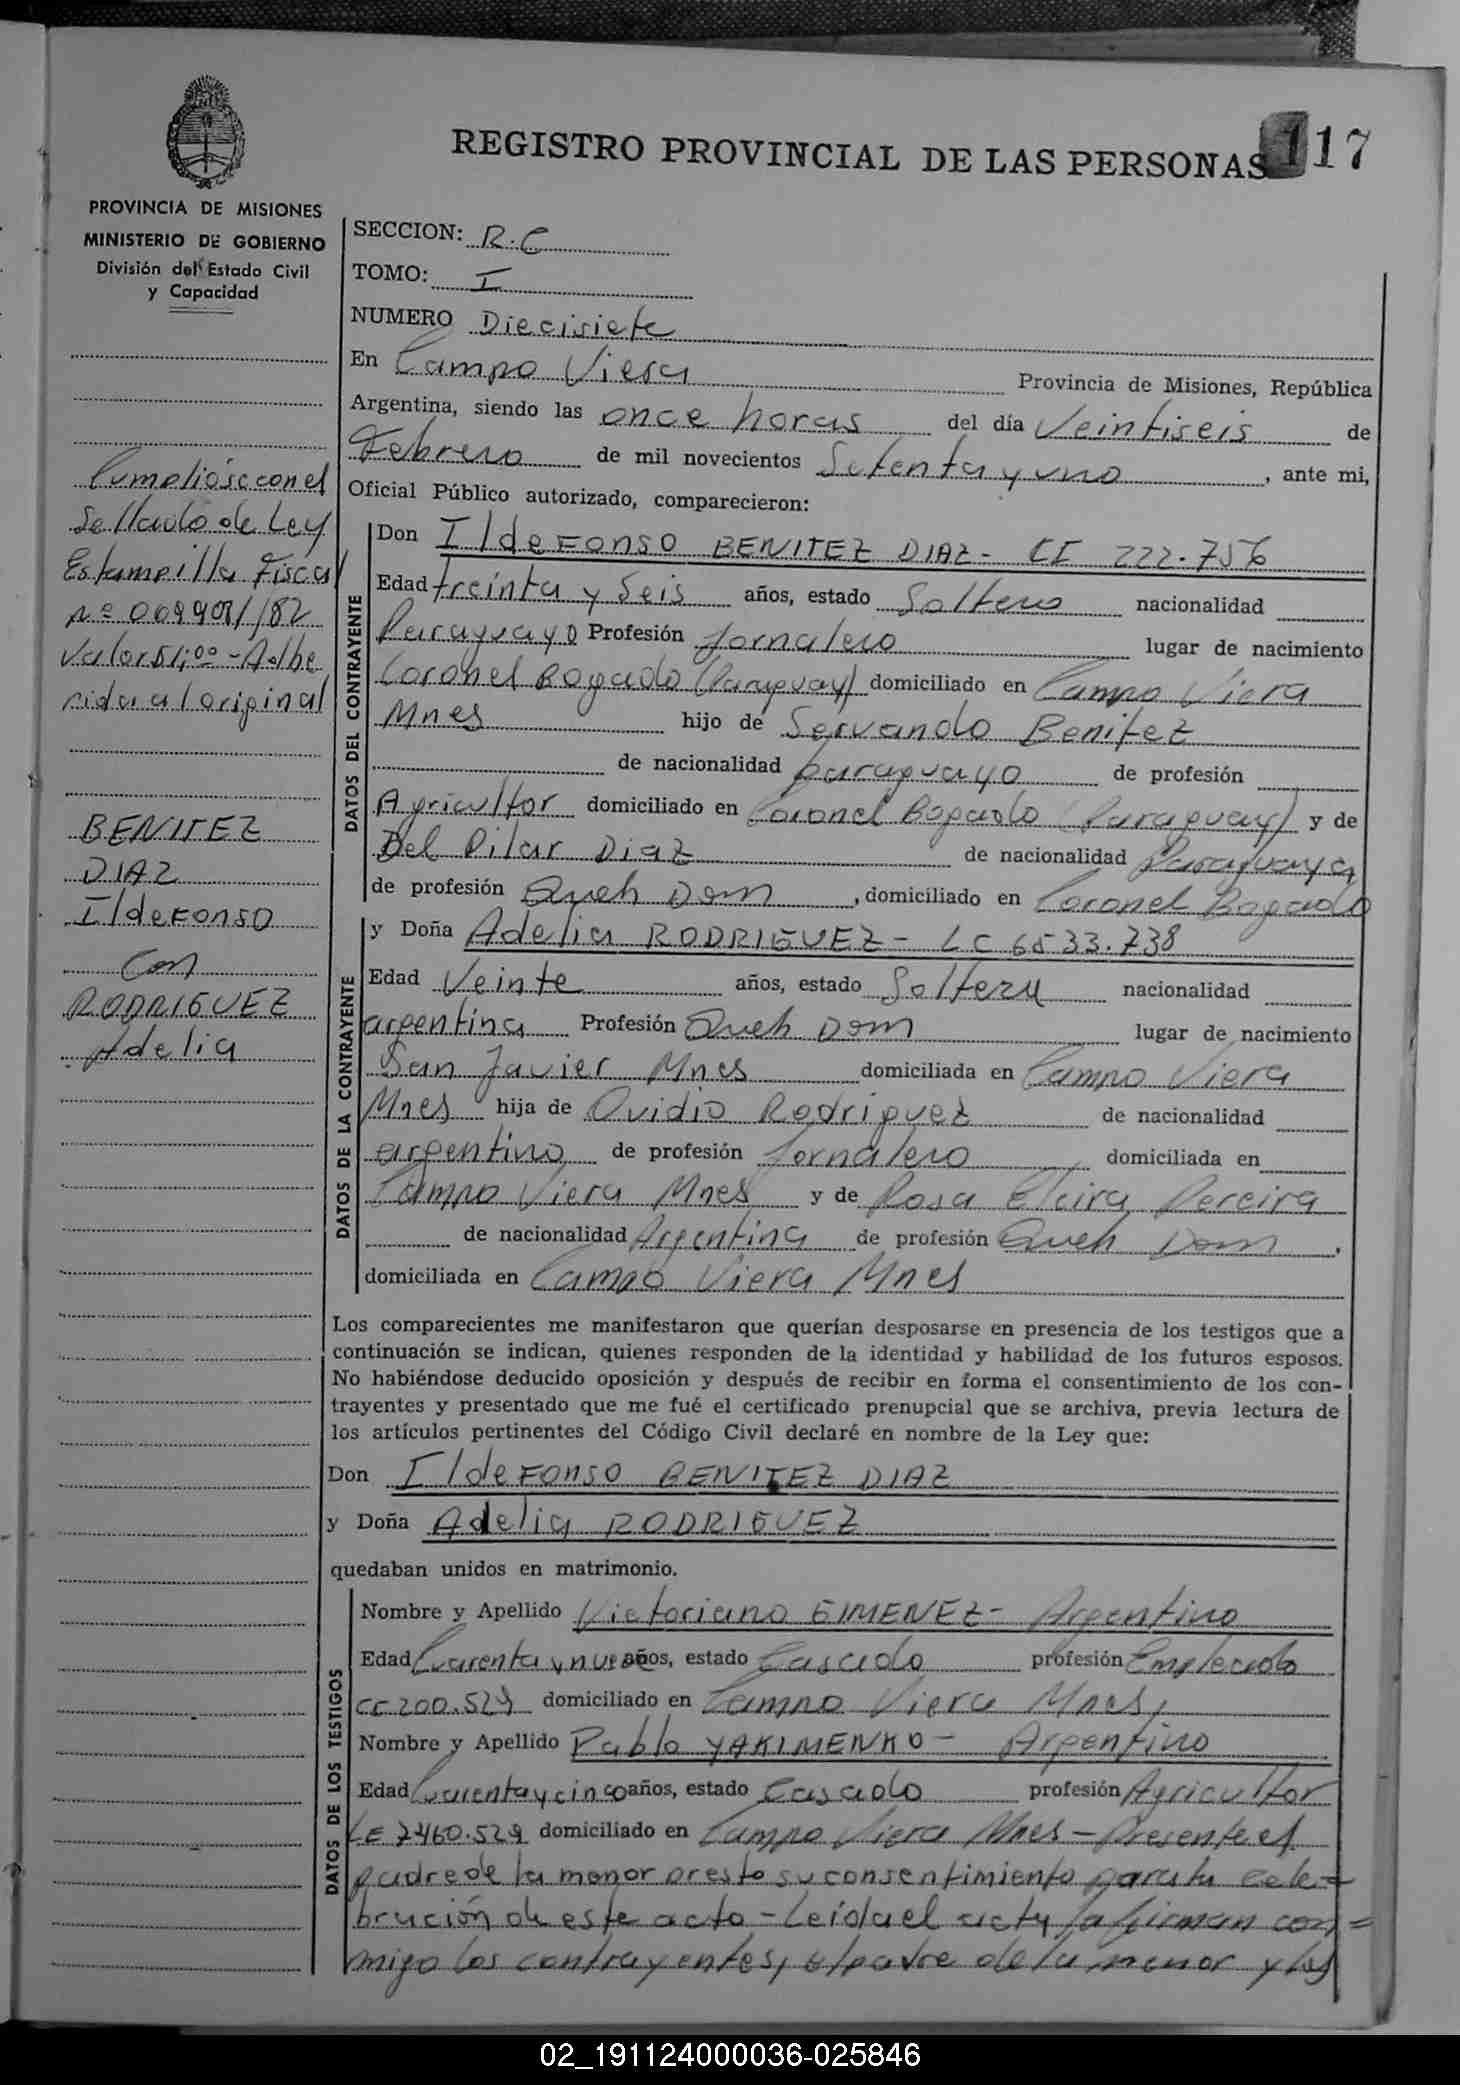 REGISTRO PROVINCIAL DE LAS PERSONAS 117
PROVINCIA DE MISIONES
MINISTERIO DE GOBIERNO
División del Estado Civil
y Capacidad
Cumplióse con el
Sellado de Ley
Estampilla Fiscal
Valor $1,00 - Adhe
rida al original
BENITEZ
DIAZ
Ildefonso
Con
RODRIGUEZ
Adelia
SECCION: R.C
TOMO: I
NUMERO Diecisiete
En Campo Viera Provincia de Misiones, República
Argentina, siendo las once horas del día Veintiseis de
Febrero de mil novecientos Setenta y uno, ante mi,
Oficial Público autorizado, comparecieron:
DATOS DEL CONTRAYENTE
Don Ildefonso BENITEZ DIAZ - CI 222.756
Edad treinta y Seis años, estado Soltero nacionalidad
Paraguayo Profesión Jornalero lugar de nacimiento
Coronel Bogado (Paraguay) domiciliado en Campo Viera
Mnes hijo de Servando Benitez
de nacionalidad paraguayo de profesión
Agricultor domiciliado en Coronel Bogado (Paraguay) y de
Del Pilar Diaz de nacionalidad Paraguaya
de profesión Queh Dom, domiciliado en Coronel Bogado
DATOS DE LA CONTRAYENTE
y Doña Adelia RODRIGUEZ - LC 6533.738
Edad Veinte años, estado Soltera nacionalidad
argentina Profesión Queh Dom lugar de nacimiento
San Javier Mnes domiciliada en Campo Viera
Mnes hija de Ovidio Rodriguez de nacionalidad
argentino de profesión Jornalero domiciliada en
Campo Viera Mnes y de Rosa Elcira Pereira
de nacionalidad Argentina de profesión Queh Dom,
domiciliada en Campo Viera Mnes
Los comparecientes me manifestaron que querían desposarse en presencia de los testigos que a
continuación se indican, quienes responden de la identidad y habilidad de los futuros esposos.
No habiéndose deducido oposición y después de recibir en forma el consentimiento de los con-
trayentes y presentado que me fué el certificado prenupcial que se archiva, previa lectura de
los artículos pertinentes del Código Civil declaré en nombre de la Ley que:
Don Ildefonso BENITEZ DIAZ
y Doña Adelia RODRIGUEZ
quedaban unidos en matrimonio.
DATOS DE LOS TESTIGOS
Nombre y Apellido Victoriano GIMENEZ - Argentino
Edad Cuarenta y nueve años, estado Casado profesión Empleado
200.529 domiciliado en Campo Viera Mnes,
Nombre y Apellido Pablo YAKIMENKO - Argentino
Edad Cuarenta y cinco años, estado Casado profesión Agricultor
LE 7460.529 domiciliado en Campo Viera Mnes - Presente el
padre de la menor presto su consentimiento para la cele=
bración de este acto - Leida el acta la firman con=
migo los contrayentes, el padre de la menor y los
02_191124000036-025846